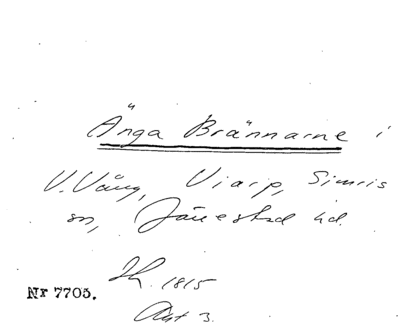 Änga Brännarne i
V. Vång, Viarp, Simris
sn, Järrestad hd.
Ih. 1815
Nr 7705.
Akt 3.